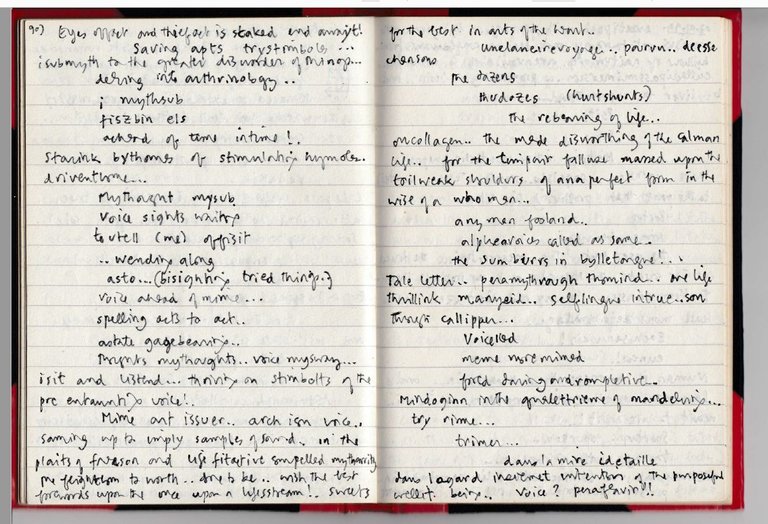 90) Eyes offer and thiefact is staked end await!
Saving apts trystimbols ...
isubmyth to the greater disorder of
delving into anthrinology ..
mythsub
fiszbin els
aeherd of time intime!.
Starink bythomes of stimulating hymoles..
driventhome...
Mythaught mysub
Voice sights waiting
to utell (me) offisit
.. wending along
asto...(bisighting tried things.)
voice ahead of mime...
spelling acts to act..
astate gagebearing..
mythoughts.. voice mysway...
isit and listend... thriving on stimbolts of the
pre entaunting voice!.
Mime ant issuer.. arch isn voice..
saming up to imply samples of sound.. in the
plaits of and life fitative compelled
me to worth.. one to be.. with the best
forewords upon the once upon a lifesstream!. sweets
for the best in arts of the want...
unelancinevoyage.. pourvu.. deesse
chansons
the dozens
thedozes (hurtshunts)
the rebearing of life...
oncollagen.. the made disworthing of the calman
life.. for the falluse marred upon the
toilweak shoulders of ana perfect form in the
wise of a who men...
any men fooland..
alphearoics called as same..
the sumberrs in bylletongue!...
Tale letter.. peramythrough themind... are life
thrillink manyeid.. selflingue intrue..son
Through callipper...
Voicelled
meme more mimed
forced daring and completive..
Mindoginn in the of mandelving...
try rime...
trimer...
dans la mire idetaille
dans lagard incremet intention of the purposeful
being.. voice?